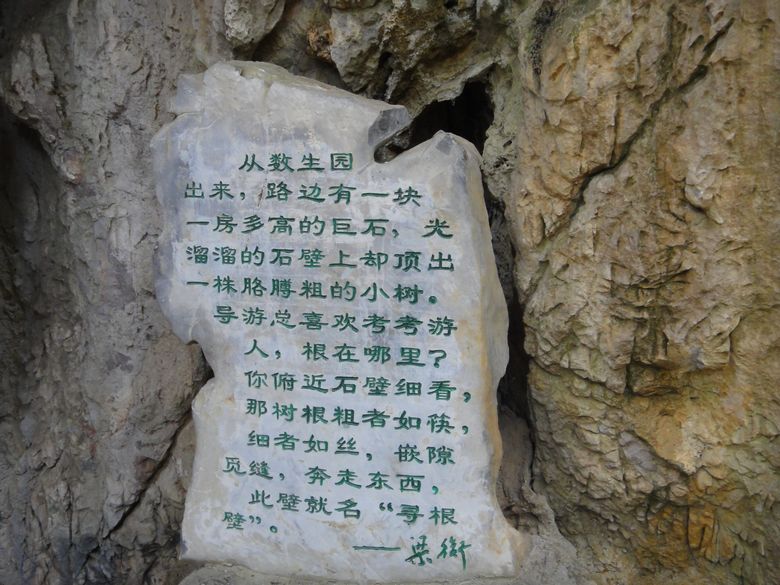 从数生园
出来，路边有一块
一房多高的巨石，光
溜溜的石壁上却顶出
一株胳膊粗的小树。
导游总喜欢考考游
人，根在哪里？
你俯近石壁细看，
那树根粗者如筷，
细者如丝，嵌隙
觅缝，奔走东西，
此壁就名“寻根
壁”。
——梁衡